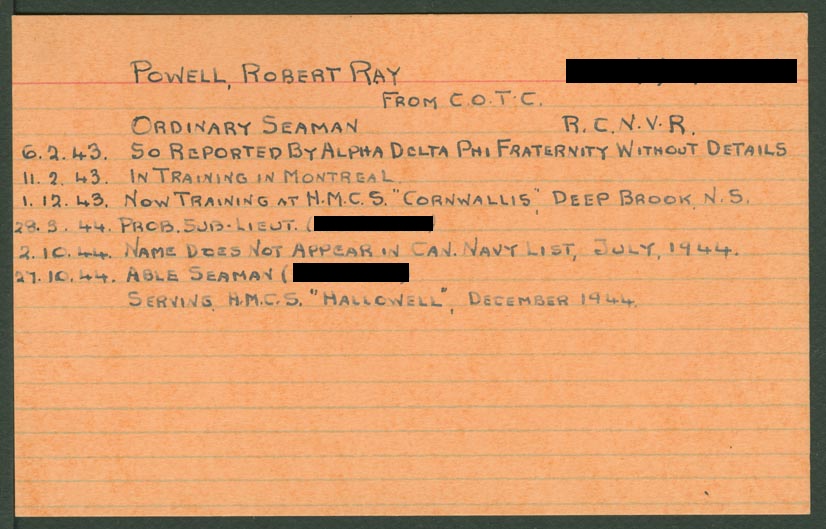 POWELL, ROBERT RAY
FROM C.O.T.C.
ORDINARY SEAMAN R.C.N.V.R.
6.2.43. SO REPORTED BY ALPHA DELTA PHI FRATERNITY WITHOUT DETAILS
11.2.43. IN TRAINING IN MONTREAL
1.12.43. NOW TRAINING AT H.M.C.S. "CORNWALLIS", DEEP BROOK, N.S.
28.3.44. PROB. SUB-LIEUT. (
2.10.44. NAME DOES NOT APPEAR IN CAN. NAVY LIST, JULY, 1944.
27.10.44. ABLE SEAMAN (
SERVING H.M.C.S. "HALLOWELL", DECEMBER 1944.